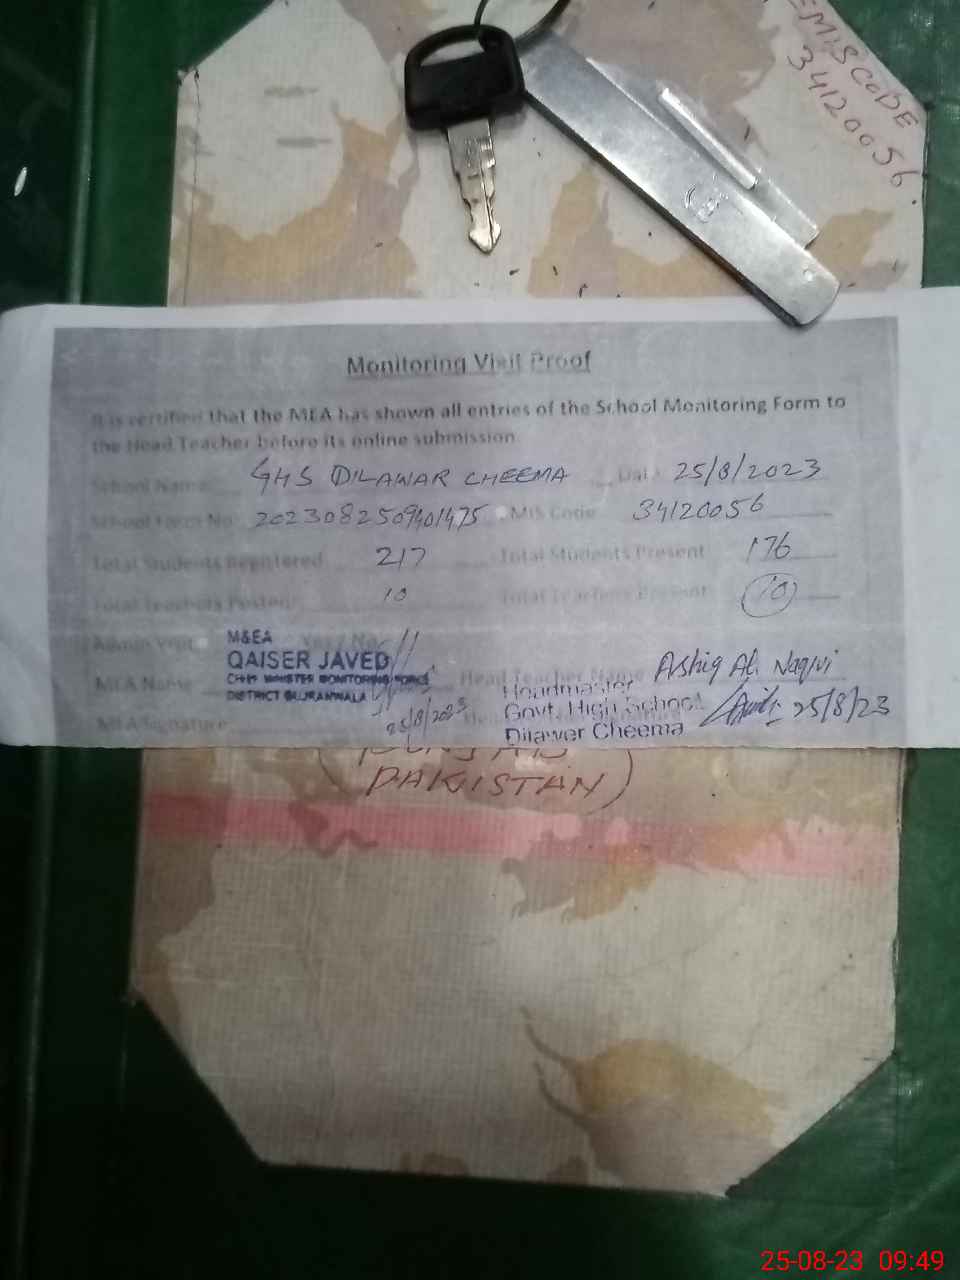 EMIS CODE
34120056
Monitoring Visit Proof
It is certified that the MEA has shown all entries of the School Monitoring Form to
the Head Teacher before its online submission
School Name GHS DILAWAR CHEEMA Dat 25/8/2023
School Form No 2023082509401475 MIS Code 34120056
Total Students Registered 217 Total Students Present 176
Total Teachers Posted 10 Total Teachers Present 10
Admin Visit Yes / No
M&EA
QAISER JAVED
CHIEF MINISTER MONITORING FORCE
DISTRICT GUJRANWALA
MEA Name Head Teacher Name Ashiq Ali Naqvi
MEA Signature 25/8/2023
Headmaster
Govt. High School
Dilawer Cheema
25/8/23
(PUNJAB
PAKISTAN)
25-08-23 09:49